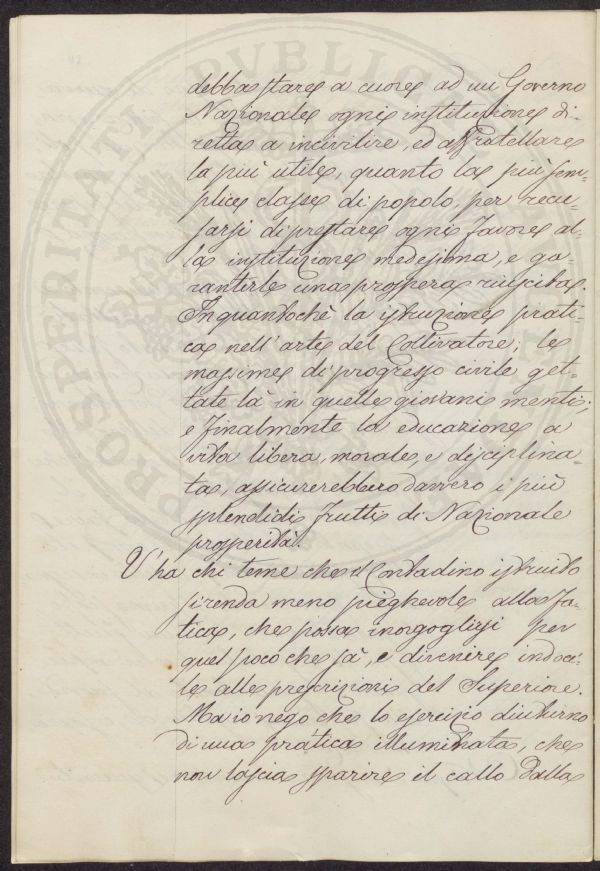 debba stare a cuore ad un Governo
Nazionale ogni instituzione di-
retta a incivilire, ed affratellare
la più utile, quanto la più sem-
plice classe di popolo, per recu-
sarsi di prestare ogni favore al-
la instituzione medesima, e ga-
rantirle una prospera riuscita.
Inquantochè la istruzione prati-
ca nell'arte del Coltivatore; le
massime di progresso civile get-
tate là in quelle giovani menti;
e finalmente la educazione a
vita libera, morale, e disciplina-
ta, assicurerebbero davvero i più
splendidi frutti di Nazionale
prosperità.
V'ha chi teme che il Contadino istruito
si renda meno pieghevole alla fa-
tica, che possa inorgoglirsi per
quel poco che sà, e divenire indoci-
le alle prescrizioni del Superiore.
Ma io nego che lo esercizio diuturno
di una pratica illuminata, che
non lascia sparire il callo dalla
PROSPERITATI PVBLICAE